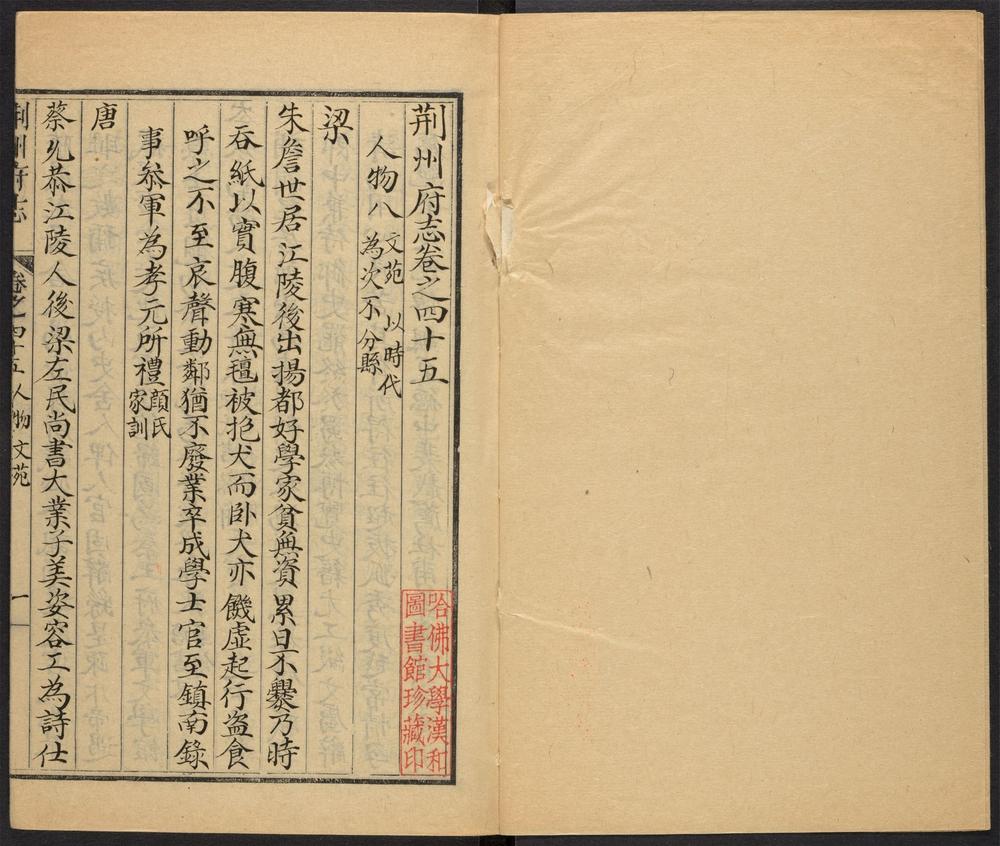 荆州府志卷之四十五
人物八 文苑 以時代
為次不分縣
梁
朱詹世居江陵後出揚都好學家貧無資累日不爨乃時
吞紙以實腹寒無氊被抱犬而卧犬亦饑虛起行盗食
呼之不至哀聲動鄰猶不廢業卒成學士官至鎮南錄
事叅軍為孝元所禮 顏氏
家訓
唐
蔡允恭江陵人後梁左民尚書大業子美姿容工為詩仕
荆州府志 卷之四十五人物文苑 一
哈佛大學漢和
圖書館珍藏印